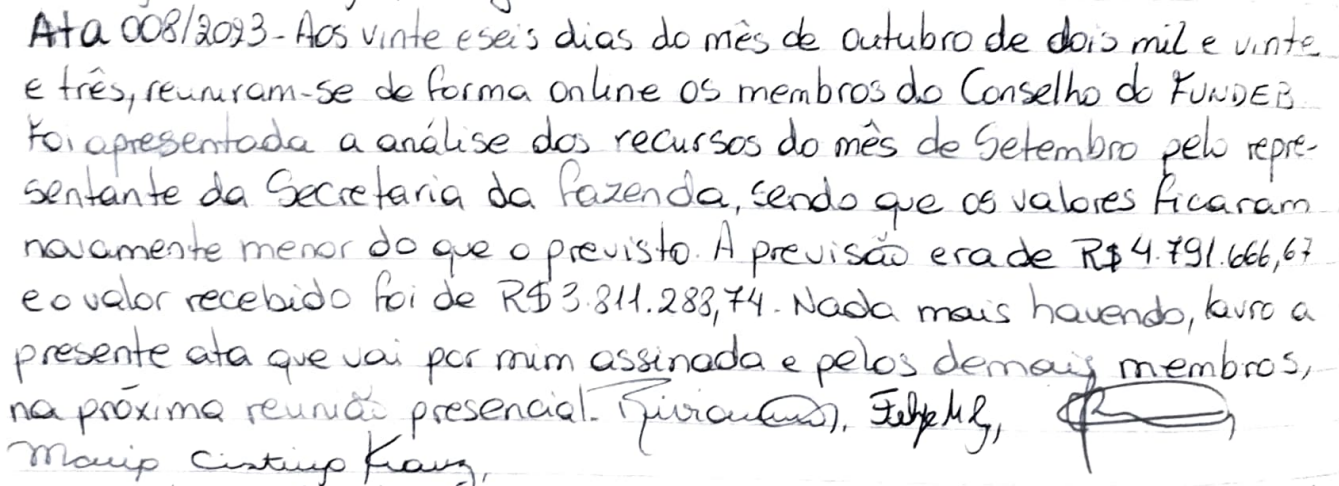 Ata 008/2023 - Aos vinte e seis dias do mês de outubro de dois mil e vinte
e três, reuniram-se de forma online os membros do Conselho do FUNDEB.
Foi apresentada a análise dos recursos do mês de Setembro pelo repre-
sentante da Secretaria da Fazenda, sendo que os valores ficaram
novamente menor do que o previsto. A previsão era de R$ 4.791.666,67
e o valor recebido foi de R$ 3.811.288,74. Nada mais havendo, lavro a
presente ata que vai por mim assinada e pelos demais membros,
na próxima reunião presencial.